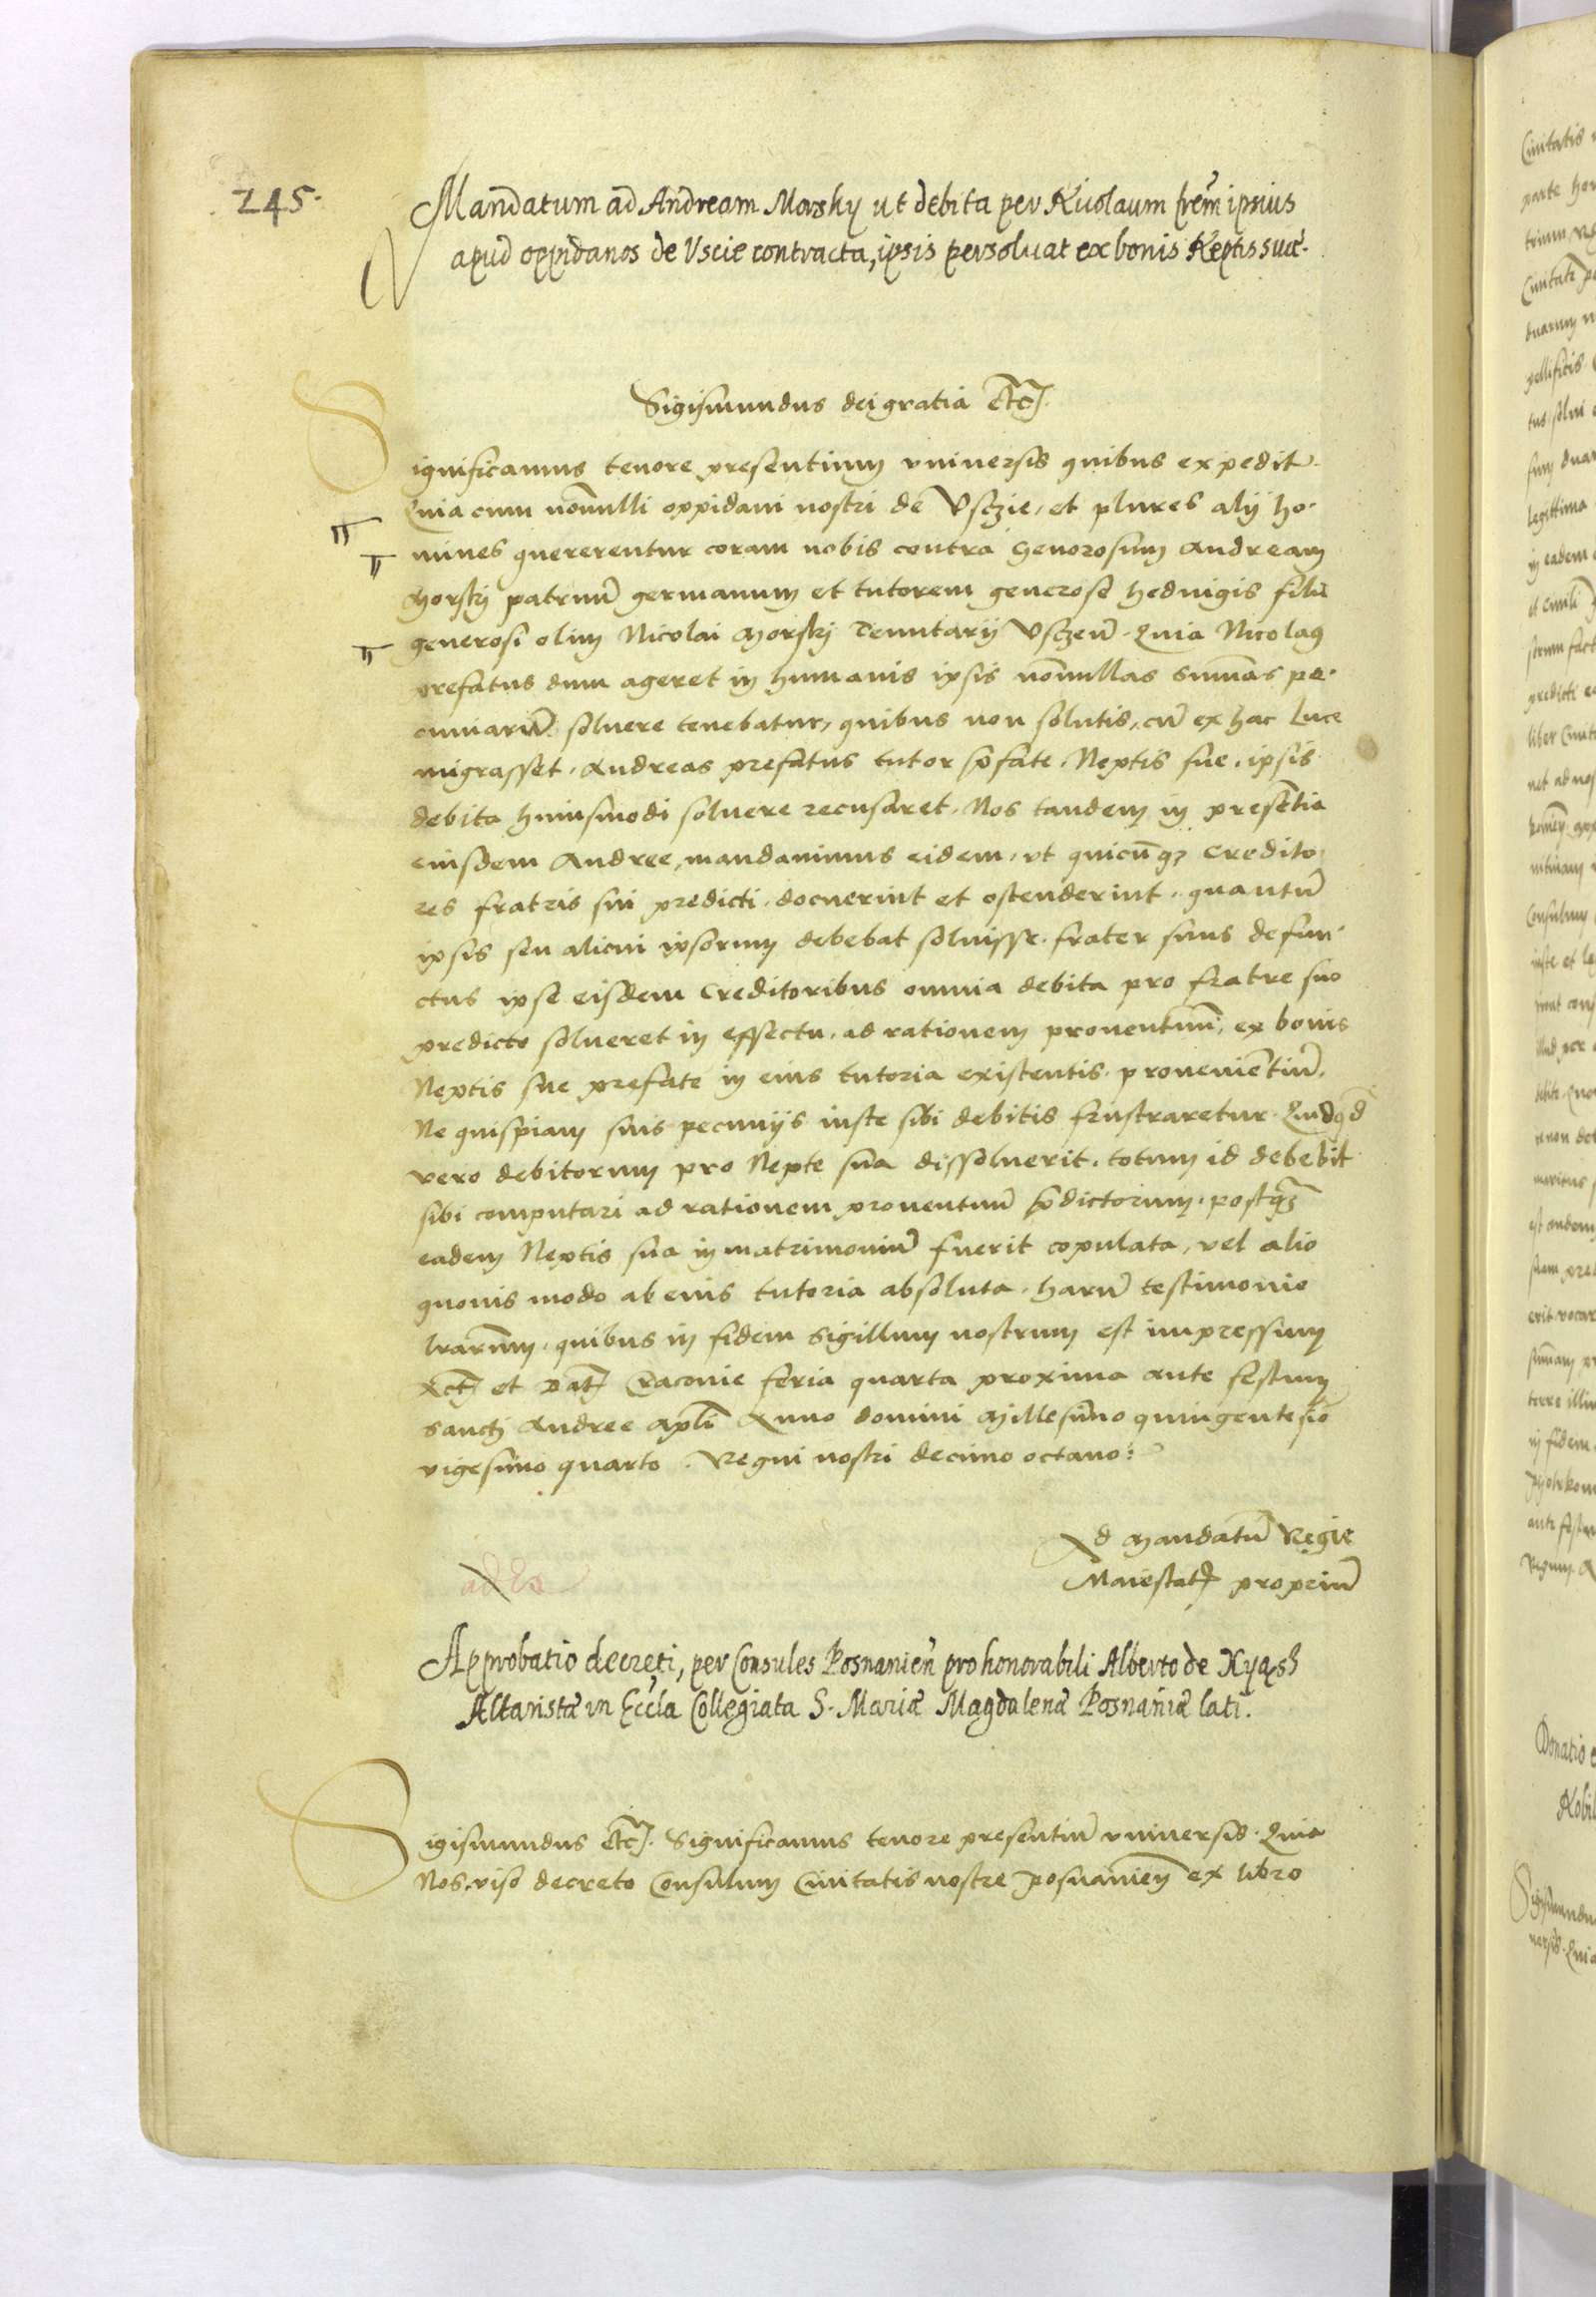 245.
Mandatum ad Andream Morsky ut debita per Nicolaum frem̄ ipsius
apud oppidanos de Uscie contracta, ipsis persoluat ex bonis Neptis suæ.
Sigismundus dei gratia Etc.
Significamus tenore presentium vniuersis quibus expedit.
Quia cum nōnulli oppidani nostri de Vsczie, et plures alij ho-
mines quererentur coram nobis contra Generosum Andream
Morskj patruū germanum et tutorem generose heduigis filiē
generosi olim Nicolai Morskj Tenutarij Vsczeñ. Quia Nicolaꝰ
prefatus dum ageret in humanis ipsis nōnullas summas pe-
cuniarū soluere tenebatur, quibus non solutis, cū ex hac Luce
migrasset, Andreas prefatus tutor p̄fate Neptis sue, ipsis
debita huiusmodi soluere recusaret. Nos tandem in presētia
eiusdem Andree, mandauimus eidem, vt quicūqꝫ credito-
res fratris sui predicti, docuerint et ostenderint, quantū
ipsis seu alicui ipsorum debebat soluisse, frater suus defun-
ctus ipse eisdem creditoribus omnia debita pro fratre suo
predicto solueret in effectu, ad rationem prouentuū, ex bonis
Neptis sue prefate in eius tutoria existentis, prouenientiū,
Ne quispiam suis pecunijs iuste sibi debitis frustraretur. Quidqđ
vero debitorum pro Nepte sua dissoluerit, totum id debebit
sibi computari ad rationem prouentuū p̄dictorum, postqꝫ
eadem Neptis sua in matrimoniū fuerit copulata, vel alio
quouis modo ab eius tutoria absoluta. harū testimonio
lrārum, quibus in fidem Sigillum nostrum est impressum
Actꝭ et Datꝭ Cracouie feria quarta proxima ante festum
sancti Andree apl̄i Anno domini Millesimo quingentesīo
vigesimo quarto. Regni nostri decimo octauo:
Ad Mandatū Regie
Maiestatꝭ propriū
Approbatio decreti, per Consules Posnanieñ pro honorabili Alberto de Xyąsz
Altaristæ in Eccła Collegiata S. Mariæ Magdalenæ Posnaniæ lati.
Sigismundus Etc. Significamus tenore presentiū vniuersis. Quia
Nos, viso decreto Consulum Ciuitatis nostre Posnanieñ ex libro